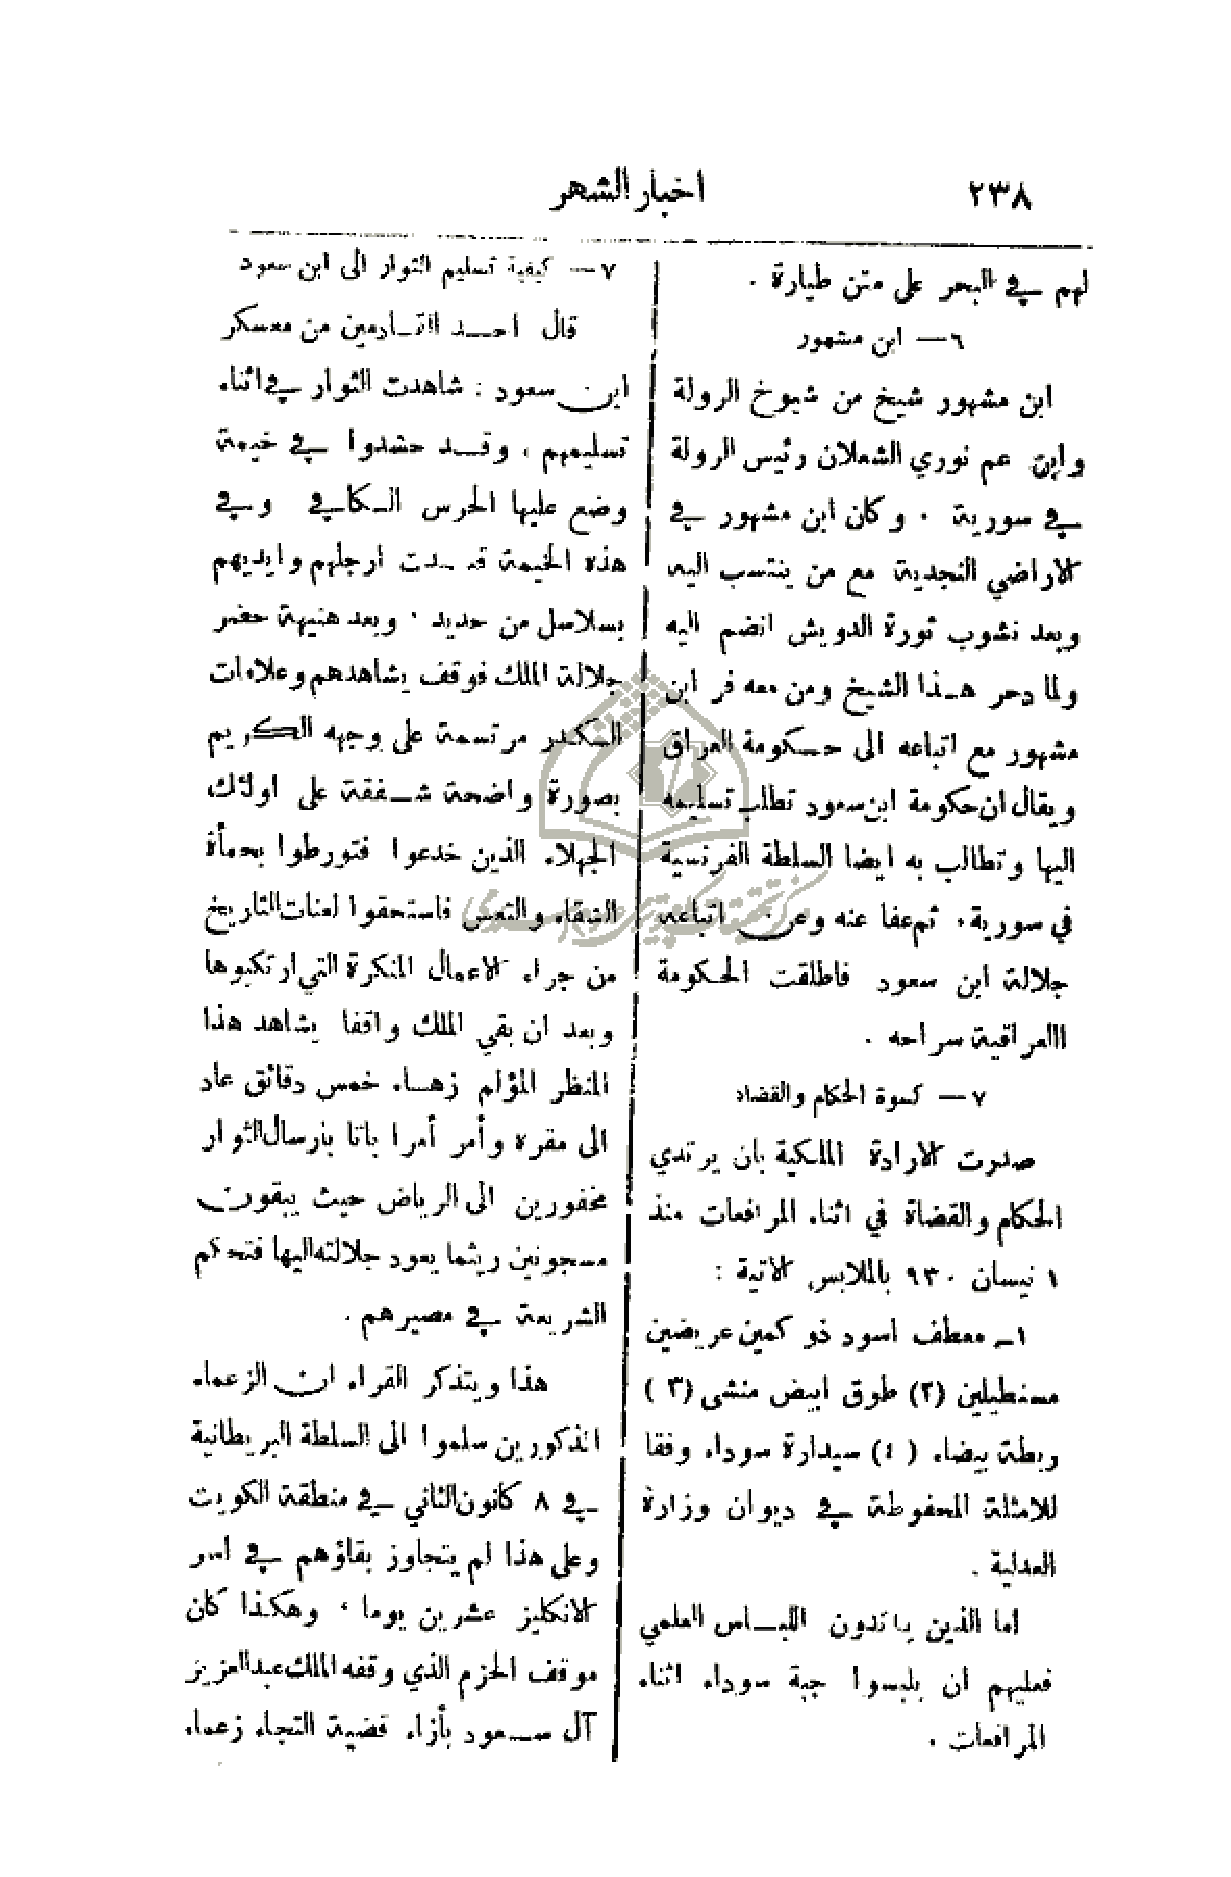 ٢٣٨
اخبار الشهر
لهم في البحر على متن طيارة .
٦ — ابن مشهور
ابن مشهور شيخ من شيوخ الرولة
وابن عم نوري الشعلان رئيس الرولة
في سورية . وكان ابن مشهور في
الاراضي النجدية مع من ينتسب اليه
وبعد نشوب ثورة الدويش انضم اليه
ولما دحر هذا الشيخ ومن معه فر ابن
مشهور مع اتباعه الى حكومة العراق
ويقال ان حكومة ابن سعود تطلب تسليمه
اليها وتطالب به ايضا السلطة الفرنسية
في سورية . ثم عفا عنه وعن اتباعه
جلالة ابن سعود فاطلقت الحكومة
االعراقية سراحه .
٧ — كسوة الحكام والقضاة
صدرت الارادة الملكية بان يرتدي
الحكام والقضاة في اثناء المرافعات منذ
١ نيسان ٩٣٠ بالملابس الاتية :
١ـ معطف اسود ذو كمين عريضين
مستطيلين (٢) طوق ابيض منشى (٣)
ربطة بيضاء (٤) سيدارة سوداء وفقا
للامثلة المحفوظة في ديوان وزارة
العدلية .
اما الذين يرتدون اللباس العلمي
فعليهم ان يلبسوا جبة سوداء اثناء
المرافعات .
٧ — كيفية تسليم الثوار الى ابن سعود
قال احد القادمين من معسكر
ابن سعود : شاهدت الثوار في اثناء
تسليمهم ، وقد حشدوا في خيمة
وضع عليها الحرس الكافي وفي
هذه الخيمة قيدت ارجلهم وايديهم
بسلاسل من حديد . وبعد هنيهة حضر
جلالة الملك فوقف يشاهدهم وعلامات
التكدر مرتسمة على وجهه الكريم
بصورة واضحة شفقة على اولائك
الجهلاء الذين خدعوا فتورطوا بحمأة
الشقاء والتعس فاستحقوا لعنات التاريخ
من جراء الاعمال المنكرة التي ارتكبوها
وبعد ان بقي الملك واقفا يشاهد هذا
المنظر المؤلم زهاء خمس دقائق عاد
الى مقره وأمر أمرا باتا بارسال الثوار
مخفورين الى الرياض حيث يبقون
مسجونين ريثما يعود جلالته اليها فتحكم
الشريعة في مصيرهم .
هذا ويتذكر القراء ان الزعماء
المذكورين سلموا الى السلطة البريطانية
في ٨ كانون الثاني في منطقة الكويت
وعلى هذا لم يتجاوز بقاؤهم في اسر
الانكليز عشرين يوما ، وهكذا كان
موقف الحزم الذي وقفه الملك عبد العزيز
آل سعود بأزاء قضية التجاء زعماء